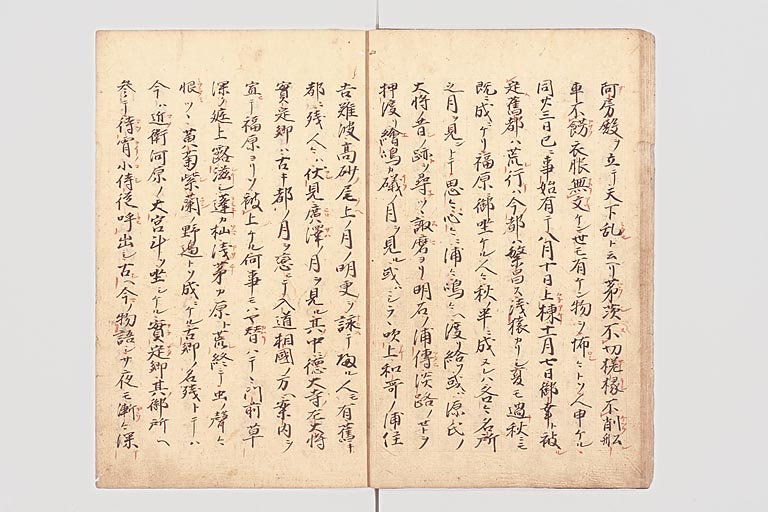 阿房殿ヲ立テ天下乱ト云リ茅茨不切採椽不削船
車不餝衣服無文ケン世モ有ケン物ヲ怖シトソ人申ケル
同六三日已ニ事始有テ八月十日上棟十一月七日御幸ト被
定舊都ハ荒行ケ今都ハ繁昌ス浅猿カリシ夏モ過秋ニモ
既ニ成ニケリ福原ニ御坐ケル人々秋半ニ成ヌレハ各々名所
之月ヲ見ントテ思々心々ニ浦々嶋々ヘ渡給ヲ或ハ源氏ノ
大将昔ノ跡ヲ尋ツヽ諏磨ヨリ明石ノ浦傳淡路ノセトヲ
押渡リ繪嶋カ礒ノ月ヲ見ル或ハシラヽ吹上和哥ノ浦住
吉難波高砂ノ尾上ノ月ノ明更ヲ詠テ歸ル人モ有舊キ
都ニ残人々ハ伏見廣澤ノ月ヲ見ル其中徳大寺左大将
實定卿ハ古キ都ノ月ヲ恋テ入道相國ノ方ヘ案内ヲ
宣テ福原ヨリソ被上ケル何事モハヤ替ハテヽ門前草
深ク庭上露滋シ蓬カ杣浅茅カ原ト荒終テ虫ノ聲々
恨ツヽ黄菊紫菊ノ野邊トソ成ニケル古郷ノ名残トテハ
今ハ近衛河原ノ大宮斗ソ坐シケル實定卿其御所ヘ
参テ待宵小侍従呼出シ古ヘ今ノ物語シサ夜モ漸々深